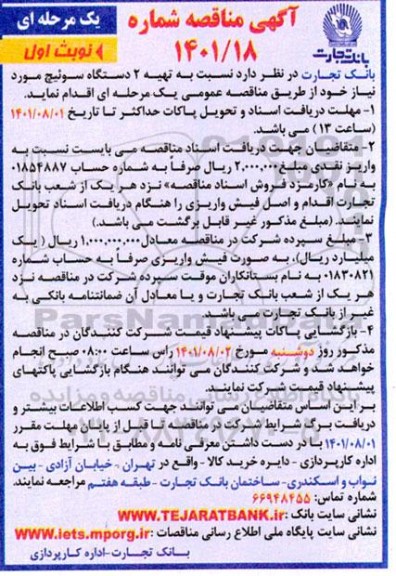 آگهی مناقصه شماره
۱۴۰۱/۱۸
یک مرحله ای
نوبت اول
بانک تجارت
بانک تجارت در نظر دارد نسبت به تهیه ۲ دستگاه سوئیچ مورد
نیاز خود از طریق مناقصه عمومی یک مرحله ای اقدام نماید.
۱- مهلت دریافت اسناد و تحویل پاکات حداکثر تا تاریخ ۱۴۰۱/۰۸/۰۱
(ساعت ۱۳) می باشد.
۲- متقاضیان جهت دریافت اسناد مناقصه می بایست نسبت به
واریز نقدی مبلغ ۲،۰۰۰،۰۰۰ ریال صرفاً به شماره حساب ۰۱۸۵۴۸۸۷
به نام «کارمزد فروش اسناد مناقصه» نزد هر یک از شعب بانک
تجارت اقدام و اصل فیش واریزی را هنگام دریافت اسناد تحویل
نمایند. (مبلغ مذکور غیر قابل برگشت می باشد.)
۳- مبلغ سپرده شرکت در مناقصه معادل ۱،۰۰۰،۰۰۰،۰۰۰ ریال ( یک
میلیارد ریال)، به صورت فیش واریزی صرفاً به حساب شماره
۰۱۸۳۰۸۲۱ به نام بستانکاران موقت سپرده شرکت در مناقصه نزد
هر یک از شعب بانک تجارت و یا معادل آن ضمانتنامه بانکی به
غیر از بانک تجارت می باشد.
۴- بازگشایی پاکات پیشنهاد قیمت شرکت کنندگان در مناقصه
مذکور روز دوشنبه مورخ ۱۴۰۱/۰۸/۰۲ راس ساعت ۰۸:۰۰ صبح انجام
خواهد شد و شرکت کنندگان می توانند هنگام بازگشایی پاکتهای
پیشنهاد قیمت شرکت نمایند.
بر این اساس متقاضیان می توانند جهت کسب اطلاعات بیشتر و
دریافت برگ شرایط شرکت در مناقصه تا قبل از پایان مهلت مقرر
۱۴۰۱/۰۸/۰۱ با در دست داشتن معرفی نامه و مطابق با شرایط فوق به
اداره کارپردازی - دایره خرید کالا - واقع در تهران، خیابان آزادی - بین
نواب و اسکندری- ساختمان بانک تجارت - طبقه هفتم مراجعه نمایند.
شماره تماس: ۶۶۹۴۸۴۵۵
نشانی سایت بانک: WWW.TEJARATBANK.ir
نشانی سایت پایگاه ملی اطلاع رسانی مناقصات: www.iets.mporg.ir
بانک تجارت-اداره کارپردازی